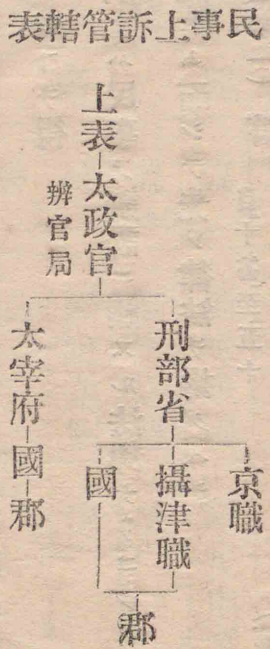 民事上訴管轄表
上表
太政官
辨官局
刑部省
京職
攝津職
國
郡
太宰府
國
郡